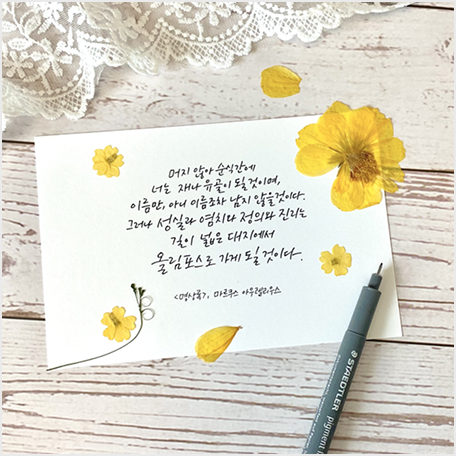 머지 않아 순식간에
너는 재나 유골이 될것이며,
이름만, 아니 이름조차 남지 않을것이다.
그러나 성실과 염치와 정의와 진리는
길이 넓은 대지에서
올림포스로 가게 될 것이다.
<명상록>, 마르쿠스 아우렐리우스
STAEDTLER
pigment